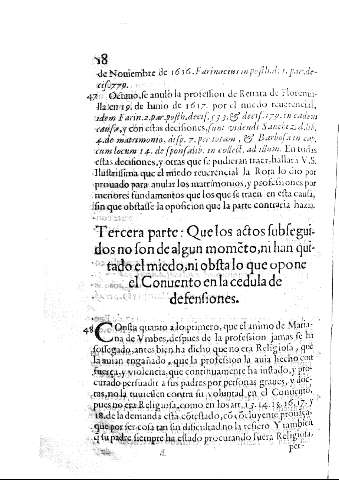 18
de Nouiembre de 1616. Farinacius in posth. d. 1. par. de-
cis. 779.
47 Octauo, se anulò la profession de Renata de
lla en 19. de Iunio de 1617. por el miedo reuerencial,
idem Farin. 2. par. posth. decis. 533. & decis. 179. in eadem
causa, y con estas decisiones, sunt videndi Sanchez d. lib.
4. de matrimonio, disp. 7. per totam, & Barbosa in ca.
cum locum 14. de sponsalib. in collect. ad illum. En todas
estas decisiones, y otras que se pudieran traer, hallarà V.S.
Ilustrissima que el miedo reuerencial la Rota lo dio por
prouado para anular los matrimonios, y professiones por
menores fundamentos que los que se traen en esta causa,
sin que obstasse la oposicion que la parte contraria hazia.
Tercera parte: Que los actos subsegui
dos no son de algun momẽto, ni han qui
tado el miedo, ni obsta lo que opone
el Conuento en la cedula de
defensiones.
48 Consta quanto a lo primero, que el animo de Maria-
na de Vmbes, despues de la profession jamas se ha
sossegado, antes bien ha dicho que no era Religiosa, que
la auian engañado, que la profession la auia hecho con
fuerça, y violencia, que continuamente ha instado, y pro-
curado persuadir a sus padres por personas graues, y doc-
tas, no la tuuiessen contra su voluntad en el Conuento,
pues no era Religiosa, como en los art. 13. 14. 15. 16. 17. y
18. de la demanda està cõtestado, cõ cõcluyente prouãça,
que por ser cosa tan sin dificultad no la refiero. Y tambien
q su padre siempre ha estado procurando fuera Religiosa,
per-